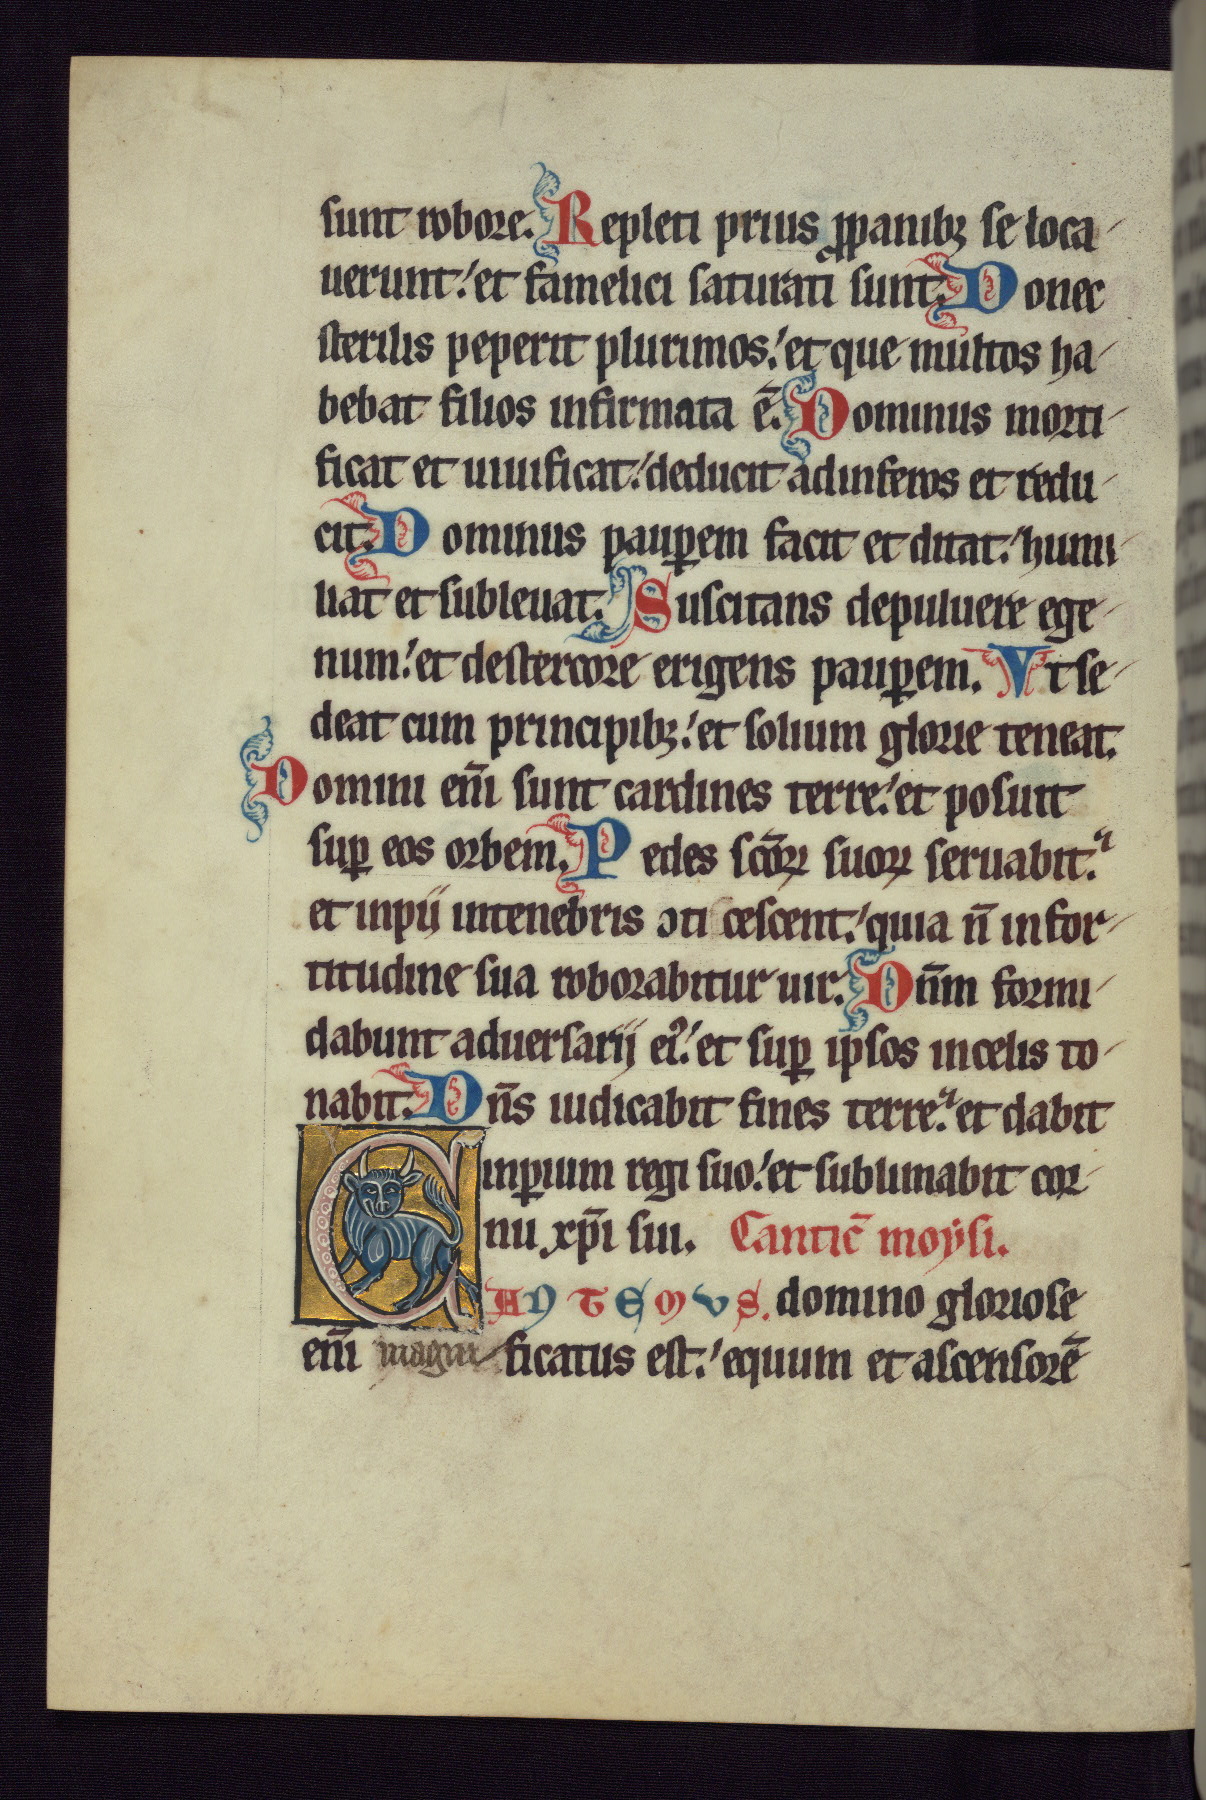 sunt robore. Repleti prius ꝓpanibꝫ se loca
uerunt: et famelici saturati sunt. Donec
sterilis peperit plurimos: et que multos ha
bebat filios infirmata ē. Dominus morti
ficat et uiuificat: deducit adinferos et redu
cit. Dominus pauꝑem facit et ditat: humi
liat et subleuat. Suscitans depuluere ege
num: et destercore erigens pauꝑem. Vt se
deat cum principibꝫ: et solium glorie teneat.
Domini eni̅ sunt cardines terre: et posuit
suꝑ eos orbem. Pedes sco̅ꝝ suoꝝ seruabit:
et inpij intenebris ↄticescent: quia n̅ infor
titudine sua roborabitur uir. Dn̅m formi
dabunt aduersarij eiꝰ: et suꝑ ipsos incelis to
nabit. Dn̅s iudicabit fines terre: et dabit
inꝑium regi suo: et sublimabit cor
nu xp̅i sui. Cantic̅ moysi.
CANTEMVS. domino gloriose
eni̅ magnificatus est: equum et ascensore̅